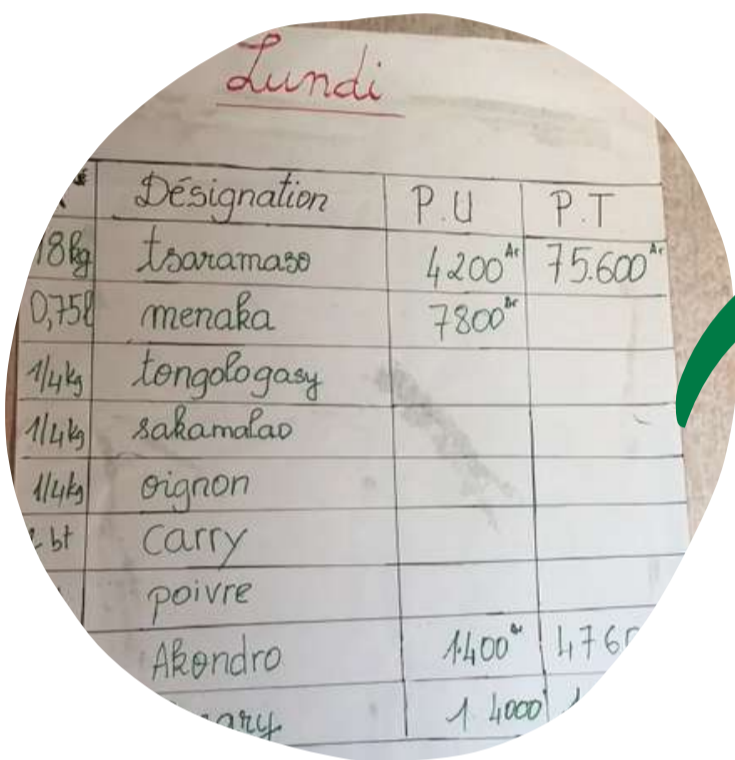 Lundi
Désignation P.U P.T
18kg tsaramaso 4200Ar 75.600Ar
0,75l menaka 7800Ar
1/4kg tongologasy
1/4kg sakamalao
1/4kg oignon
bt Carry
poivre
Akondro 1.400Ar
1 4000